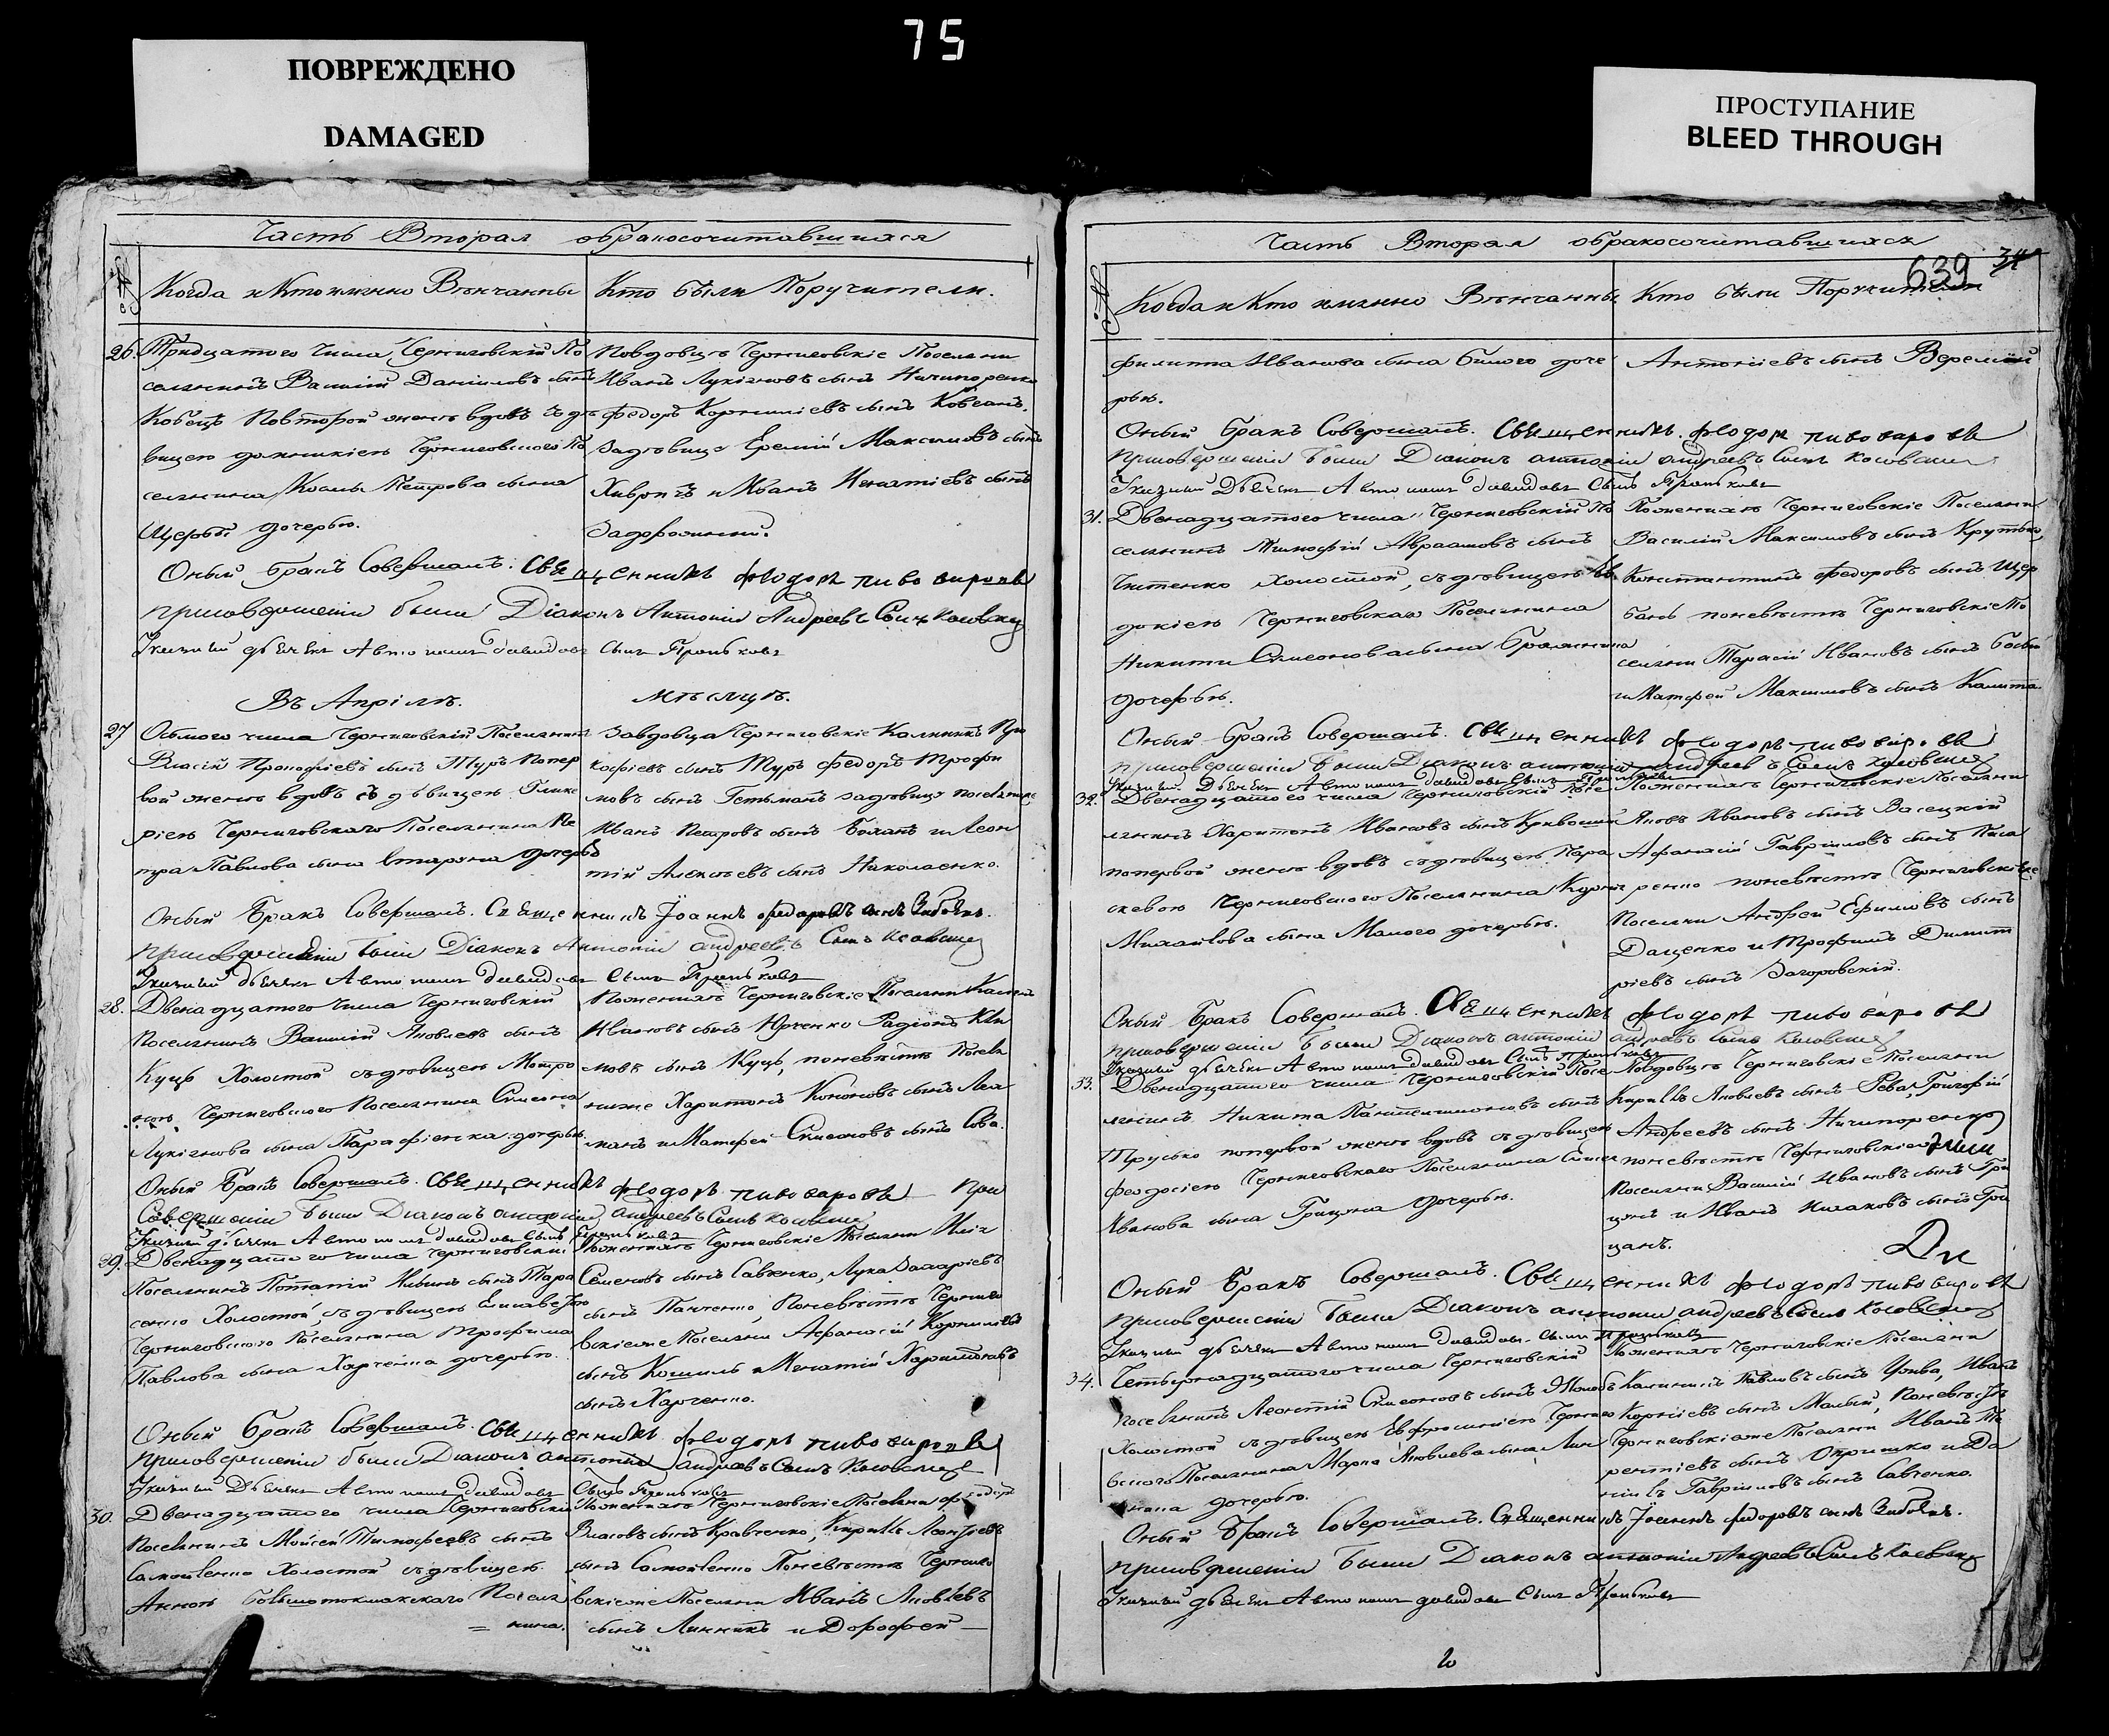 75
ПОВРЕЖДЕНО
DAMAGED
ПРОСТУПАНИЕ
BLEED THROUGH
Часть Вторая о бракосочитавшихся
№
Когда и Кто имянно Венчанны
Кто были Поручители.
26. Тридцатого Числа, Черниговский По
селянинъ Василий Данииловъ сынъ
Кобецъ Повторой женъ вдовъ съ дѣ
вицею Черниговского По
селянина Космы Петрова сына
Щербы дочерью.
Повдовцѣ Черниговскіе Поселяни
Иванъ Лукіяновъ сынъ Ничипоренко
Федоръ Корнилiевъ сынъ
задѣвице Еремій Максимовъ сынъ
Хивричъ и Иванъ Игнатіевъ сынъ
Задорожний.
Оный Бракъ Совершалъ: Священникъ Феодоръ Пивоваровъ
присовершеніи были Діаконъ Антоній Андреевъ Сынъ Косовский
дьячекъ Автономъ давидовъ Сынъ
Въ Апрѣлѣ. мѣсяцѣ.
27 Осьмого числа Черниговскій Поселянинъ
Власій Прокофіевъ сынъ Туръ Попер
вой женъ вдовъ съ дѣвицею Глике
ріею Черниговскаго Поселянина Пе
тра Павлова сына дочерью
Завдовца Черниговскіе Калиникъ Про
кофіевъ сынъ Туръ Федоръ Трофи
мовъ сынъ Гетьманъ задѣвицу поселяне
Иванъ Петровъ сынъ Боханъ и Леон
тій Алексѣевъ сынъ Николаенко.
Оный Бракъ Совершалъ. Священникъ Іоаннъ федоровъ сынъ
присовершеніи были Діаконъ Антоній андреевъ Сынъ Косовский
дьячекъ Автономъ давидовъ Сынъ
28. Двенадцатого Числа Черниговскій
Поселянинъ Василій Яковлевъ сынъ
Куцъ Холостой съ дѣвицею Матро
ною Черниговского Поселянина Симеона
Лукіянова сына Парафіенка дочерью.
Поженихѣ Черниговскіе Поселяни
Ивановъ сынъ Юрченко Радіонъ Кли
мовъ сынъ Куцъ, поневѣстѣ Поселя
Харитонъ Кононовъ сынъ
и Матфей Симеоновъ сынъ Сова.
Оный Бракъ Совершалъ. Священникъ Феодоръ Пивоваровъ При
Совершеніи были Діаконъ антоній андреевъ Сынъ Косовский
дьячекъ Автономъ давидовъ Сынъ
29. Двенадцатого числа Черниговский
Поселянинъ Потапій Ильинъ сынъ Тара
сенко Холостой, съ дѣвицею Елисаветою
Черниговского Поселянина Трофима
Павлова сына Харченка дочерью.
Поженихѣ Черниговскіе Поселяни Илія
Семеновъ сынъ Савченко, Лука Захаріевъ
сынъ Панченко, Поневѣстѣ Черниго
вскіеже Поселяни Афанасій Корниліевъ
сынъ Кошиль и Игнатій Харитоновъ
сынъ Харченко.
Оный Бракъ Совершалъ. Священникъ Феодоръ Пивоваровъ
присовершеніи были Діаконъ антоній андреевъ Сынъ Косовский
дьячекъ Автономъ давидовъ Сынъ
30. Двенадцатого числа Черниговский
Поселянинъ Мойсей Тимофеевъ сынъ
Самойленко Холостой съ дѣвицею
Анною Большотокмакского Поселя
= нина.
Поженихѣ Черниговскіе Поселяни Федоръ
Власовъ сынъ Кравченко, Кирилъ Леонтіевъ
сынъ Самойленко Поневѣстѣ Черниго
вскіеже Поселяни Иванъ Яковлевъ
сынъ Линникъ и Дорофей
Часть Вторая о бракосочитавшихся
639 34
№
Когда и Кто имянно Венчанны
Кто были Поручители
Филиппа Иванова сына Билого доче
рью.
Антоніевъ сынъ Веремій
Оный Бракъ Совершалъ. Священникъ. Феодоръ Пивоваровъ
присовершеніи были Діаконъ антоній андреевъ Сынъ Косовский
дьячекъ Автономъ давидовъ Сынъ
31. Двенадцатого числа Черниговскій По
селянинъ Тимофій Авраамовъ сынъ
Холостой, съ дѣвицею Ев
докіею Черниговскаго Поселянина
Никити Симеонова сына Бражника
дочерью.
Поженихѣ Черниговскіе Поселяни
Василій Максимовъ сынъ Крутько,
Константинъ Федоровъ сынъ Щер
бань поневѣстѣ Черниговскіе По
селяни Тарасій Ивановъ сынъ
и Матфей Максимовъ сынъ Калита.
Оный Бракъ Совершалъ. Священникъ Феодоръ Пивоваровъ
присовершеніи были Діаконъ антоній андреевъ Сынъ Косовский
дьячекъ Автономъ давидовъ Сынъ
32. Двенадцатого числа Черниговскій Посе
лянинъ Харитонъ Ивановъ сынъ
попервой женъ вдовъ съ дѣвицею Пара
скевою Черниговского Поселянина Корнія
Михайлова сына Малого дочерью.
Поженихѣ Черниговскіе Поселяни
Яковъ Ивановъ сынъ Засецкій
Афанасій Гавриловъ сынъ Писа
ренко поневѣстѣ Черниговскіеже
Поселяни Андрей Ефимовъ сынъ
Даценко и Трофимъ Димит
ріевъ сынъ Загоровскій.
Оный Бракъ Совершалъ. Священникъ Феодоръ Пивоваровъ
присовершеніи были Діаконъ антоній андреевъ Сынъ Косовский
дьячекъ Автономъ давидовъ Сынъ
33. Двенадцатого числа Черниговскій Посе
лянинъ Никита Пантелимоновъ сынъ
Трусько попервой женъ вдовъ съ дѣвицею
Феодосіею Черниговскаго Поселянина
Иванова сына Грицана дочерью.
Повдовцѣ Черниговскіе Поселяни
Кирилъ Яковлевъ сынъ Рева, Григорій
Андреевъ сынъ Ничипоренко
поневѣстѣ Черниговскіеже
Поселяни Василій Ивановъ сынъ Гри
цанъ и Иванъ Исаковъ сынъ Гри
цанъ.
Оный Бракъ Совершалъ. Священникъ Феодоръ Пивоваровъ
присовершеніи были Діаконъ антоній андреевъ Сынъ Косовский
дьячекъ Автономъ давидовъ Сынъ
34. Четырнадцатого числа Черниговскій
Поселянинъ Леонтій Симеоновъ сынъ
Холостой съ дѣвицею Евфросиніею Черниго
вского Поселянина Марка Яковлева сына Лин
ника дочерью.
Поженихѣ Черниговскіе Поселяни
Калиникъ Павловъ сынъ Иванъ
Корніевъ сынъ Малый, Поневѣстѣ
Черниговскіеже Поселяни Иванъ Те
рентіевъ сынъ Опришко и Да
ніилъ Гавриловъ сынъ Савченко.
Оный Бракъ Совершалъ. Священникъ Іоаннъ федоровъ сынъ
присовершеніи были Діаконъ антоній Андреевъ Сынъ Косовский
дьячекъ Автономъ давидовъ Сынъ